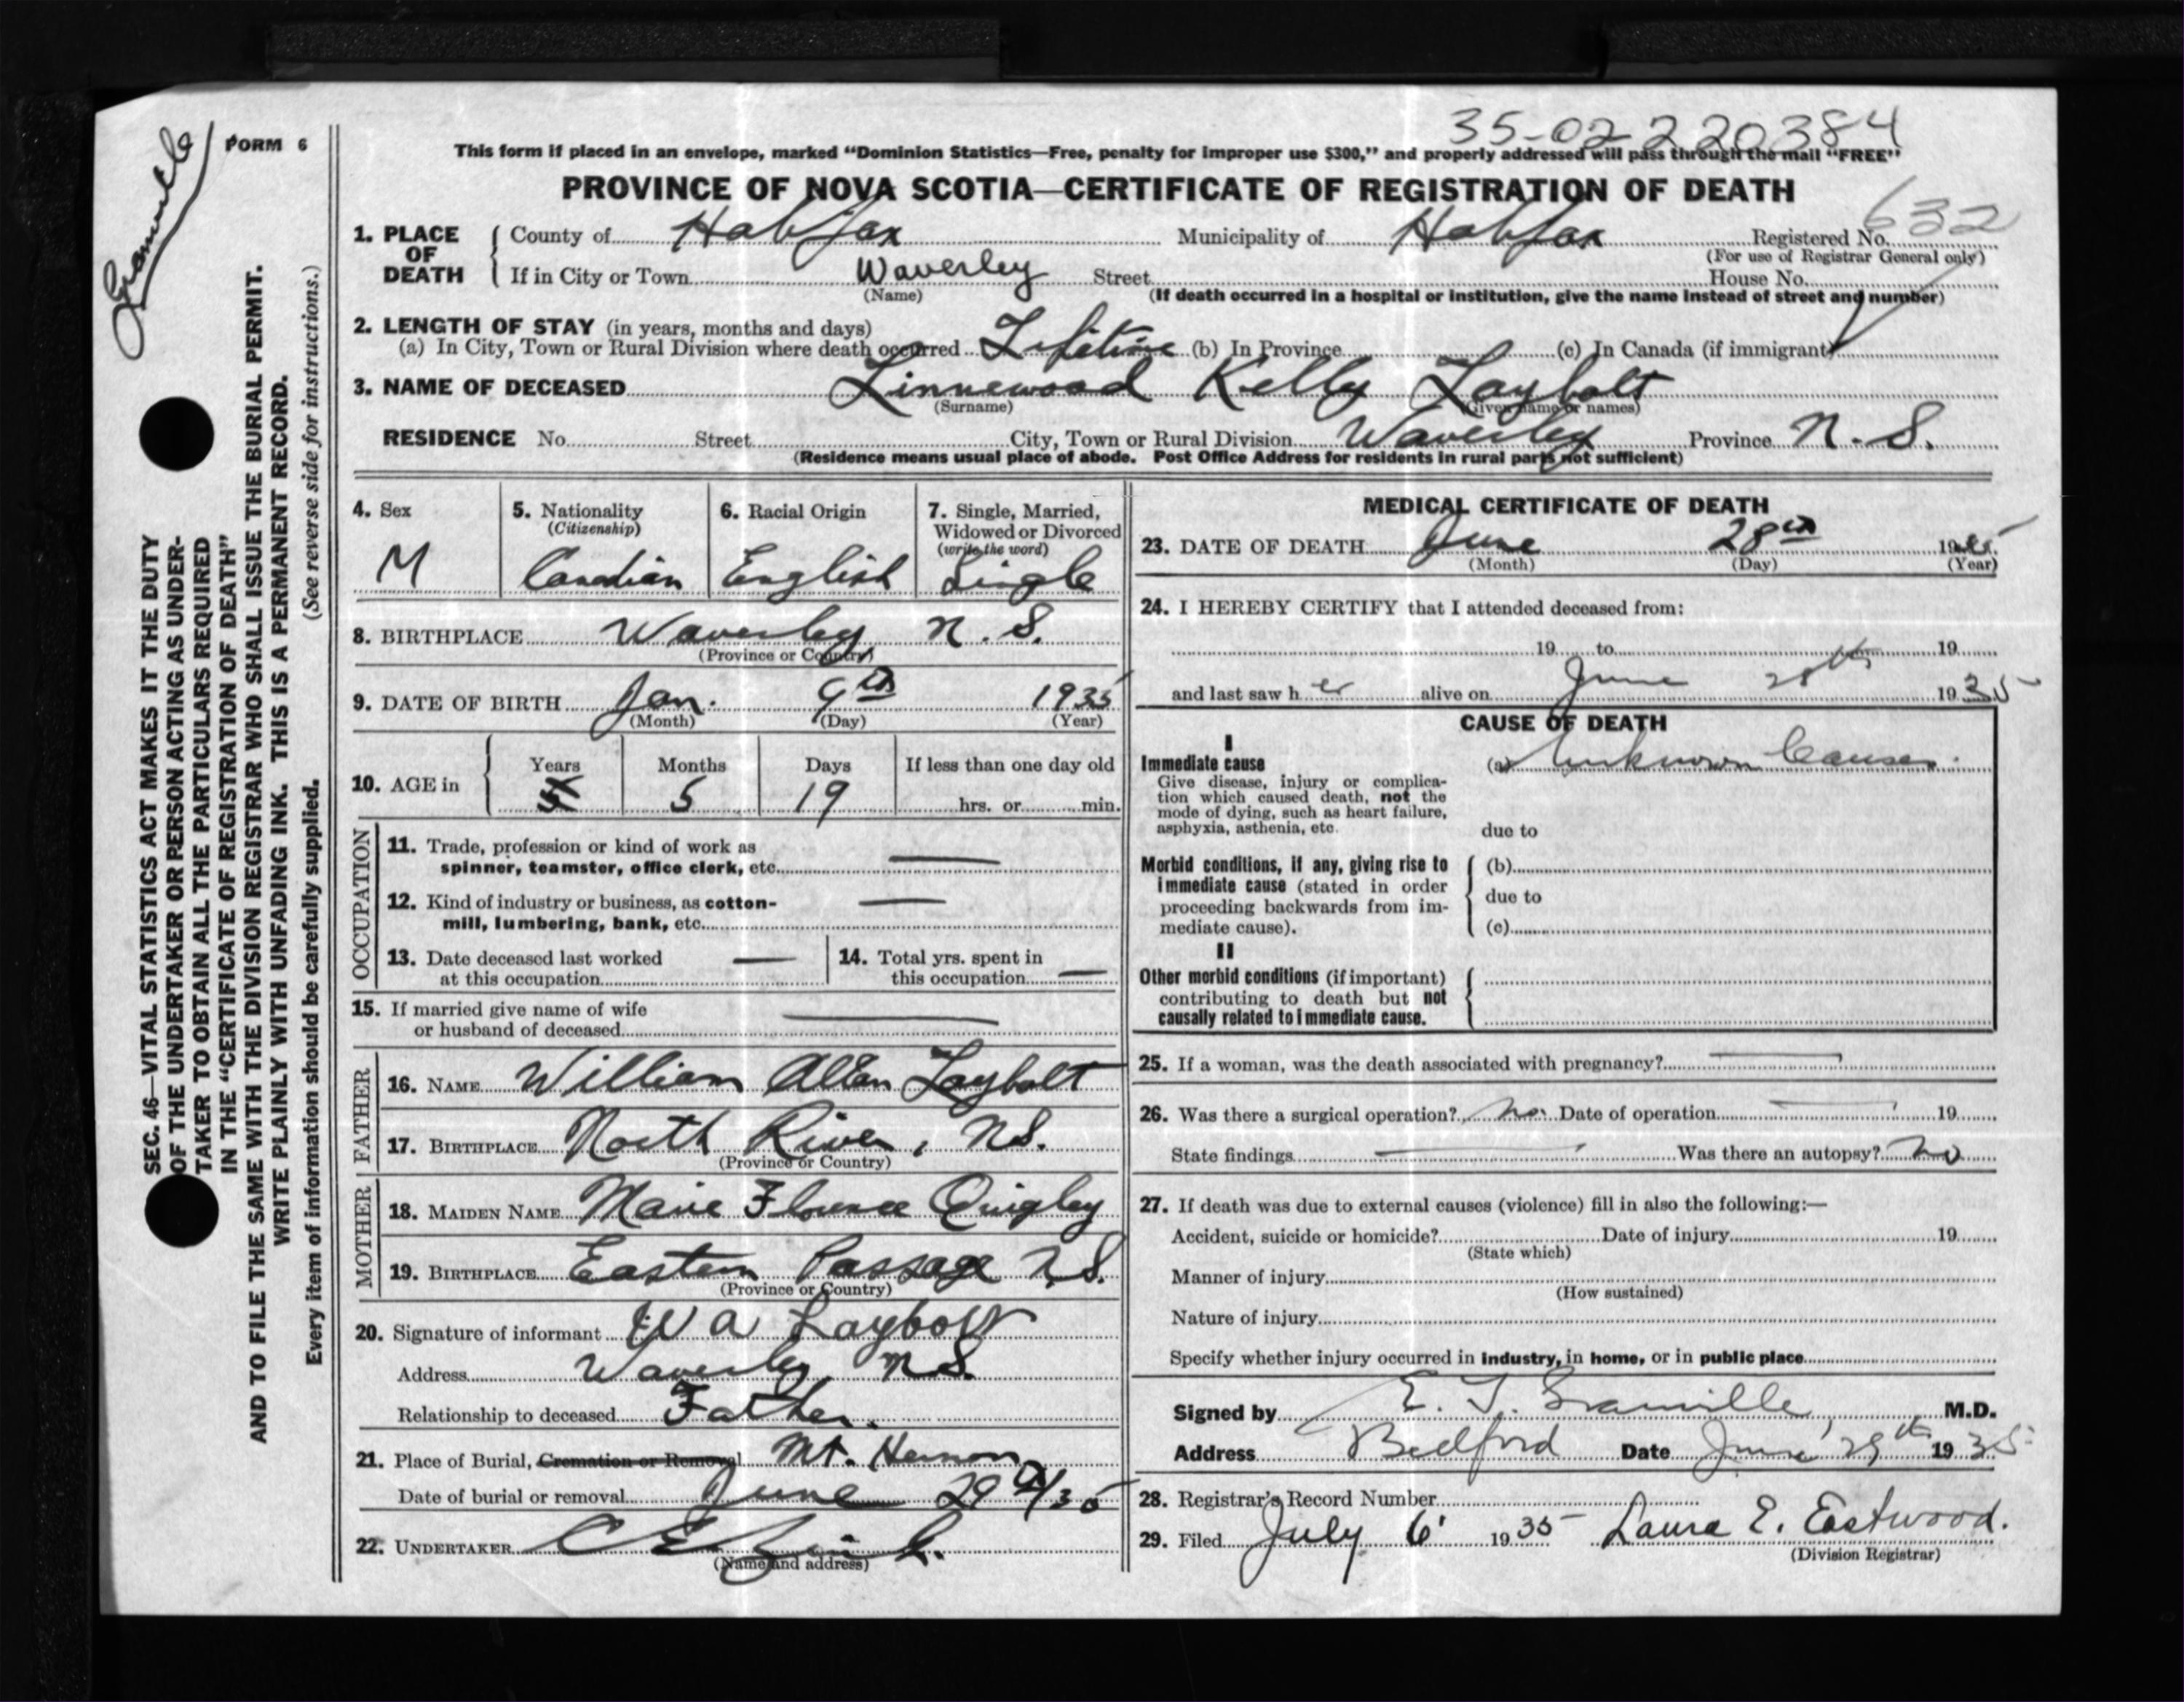 35-02-220384
FORM 6
This form if placed in an envelope, marked “Dominion Statistics—Free, penalty for improper use $300,” and properly addressed will pass through the mail “FREE”
PROVINCE OF NOVA SCOTIA—CERTIFICATE OF REGISTRATION OF DEATH
632
1. PLACE OF DEATH { County of Halifax Municipality of Halifax Registered No.
(For use of Registrar General only)
If in City or Town Waverley Street House No.
(Name) (If death occurred in a hospital or institution, give the name instead of street and number)
2. LENGTH OF STAY (in years, months and days)
(a) In City, Town or Rural Division where death occurred Lifetime (b) In Province (c) In Canada (if immigrant)
3. NAME OF DECEASED Linnewood Kelly Laybolt
(Surname) (Given name or names)
RESIDENCE No. Street City, Town or Rural Division Waverley Province N.S.
(Residence means usual place of abode. Post Office Address for residents in rural parts not sufficient)
4. Sex
M
5. Nationality
(Citizenship)
Canadian
6. Racial Origin
English
7. Single, Married,
Widowed or Divorced
(write the word)
Single
8. BIRTHPLACE Waverley N.S.
(Province or Country)
9. DATE OF BIRTH Jan. 9th 1935
(Month) (Day) (Year)
10. AGE in { Years Months Days If less than one day old
5 5 19 hrs. or min.
OCCUPATION
11. Trade, profession or kind of work as
spinner, teamster, office clerk, etc. —
12. Kind of industry or business, as cotton-
mill, lumbering, bank, etc. —
13. Date deceased last worked
at this occupation —
14. Total yrs. spent in
this occupation —
15. If married give name of wife
or husband of deceased —
FATHER
16. NAME William Allan Laybolt
17. BIRTHPLACE North River, N.S.
(Province or Country)
MOTHER
18. MAIDEN NAME Marie Florence Quigley
19. BIRTHPLACE Eastern Passage N.S.
(Province or Country)
20. Signature of informant W A Laybolt
Address Waverley N.S.
Relationship to deceased Father.
21. Place of Burial, Cremation or Removal Mt. Hermon
Date of burial or removal June 29th/35
22. UNDERTAKER
(Name and address)
MEDICAL CERTIFICATE OF DEATH
23. DATE OF DEATH June 28th 1935
(Month) (Day) (Year)
24. I HEREBY CERTIFY that I attended deceased from:
19 to 19
and last saw h er alive on June 28th 1935
CAUSE OF DEATH
I
Immediate cause (a) Unknown Causes.
Give disease, injury or complica-
tion which caused death, not the
mode of dying, such as heart failure,
asphyxia, asthenia, etc.
due to
Morbid conditions, if any, giving rise to
immediate cause (stated in order
proceeding backwards from im-
mediate cause).
(b)
due to
(c)
II
Other morbid conditions (if important)
contributing to death but not
causally related to immediate cause.
25. If a woman, was the death associated with pregnancy? —
26. Was there a surgical operation? no. Date of operation — 19
State findings — Was there an autopsy? no
27. If death was due to external causes (violence) fill in also the following:—
Accident, suicide or homicide? Date of injury 19
(State which)
Manner of injury
(How sustained)
Nature of injury
Specify whether injury occurred in industry, in home, or in public place
Signed by E. T. Granville M.D.
Address Bedford Date June 29th 1935
28. Registrar's Record Number
29. Filed July 6 1935 Laura E. Eastwood.
(Division Registrar)
Granville
SEC. 46—VITAL STATISTICS ACT MAKES IT THE DUTY
OF THE UNDERTAKER OR PERSON ACTING AS UNDER-
TAKER TO OBTAIN ALL THE PARTICULARS REQUIRED
IN THE “CERTIFICATE OF REGISTRATION OF DEATH”
AND TO FILE THE SAME WITH THE DIVISION REGISTRAR WHO SHALL ISSUE THE BURIAL PERMIT.
WRITE PLAINLY WITH UNFADING INK. THIS IS A PERMANENT RECORD.
Every item of information should be carefully supplied. (See reverse side for instructions.)